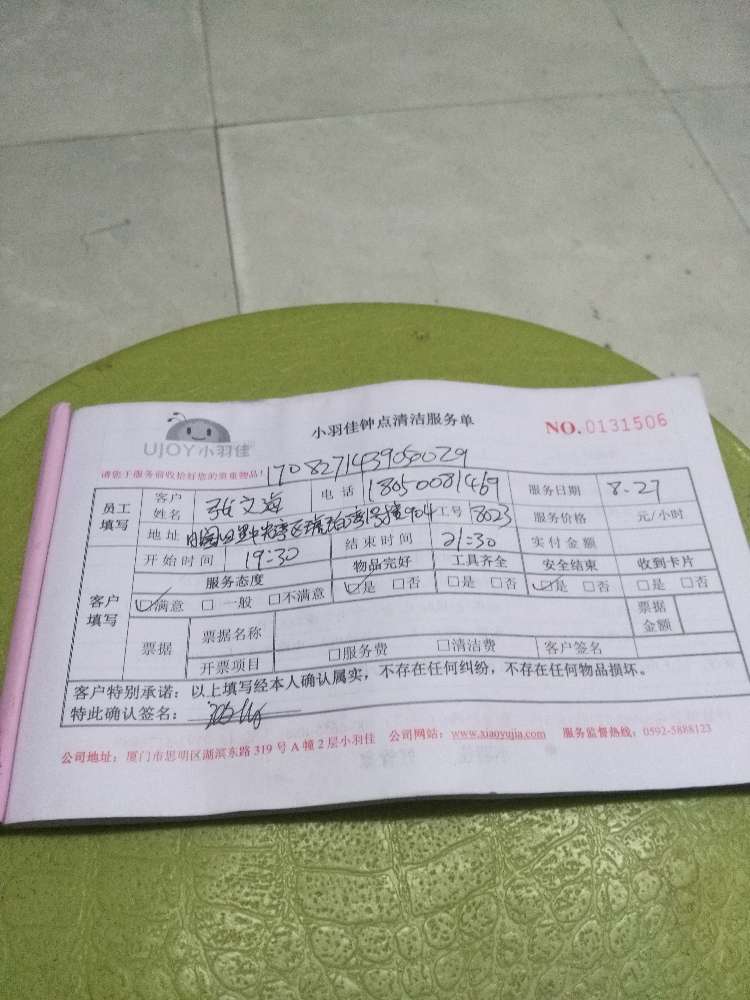 UJOY小羽佳
小羽佳钟点清洁服务单
NO.0131506
请您于服务前收拾好您的贵重物品！1708271439050029
员工填写 客户姓名 张文海 电话 18050081469 服务日期 8.27
地址 904 工号 8023 服务价格 元/小时
客户填写 开始时间 19:30 结束时间 21:30 实付金额
服务态度 物品完好 工具齐全 安全结束 收到卡片
☑满意 □ 一般 □不满意 ☑是 □否 □是 □否 ☑是 □否 □是 □否
票据 票据名称 票据金额
开票项目 □服务费 □清洁费 客户签名
客户特别承诺：以上填写经本人确认属实，不存在任何纠纷，不存在任何物品损坏。
特此确认签名：
公司地址：厦门市思明区湖滨东路 319 号 A 幢 2 层小羽佳 公司网站：www.xiaoyujia.com 服务监督热线：0592-5888123